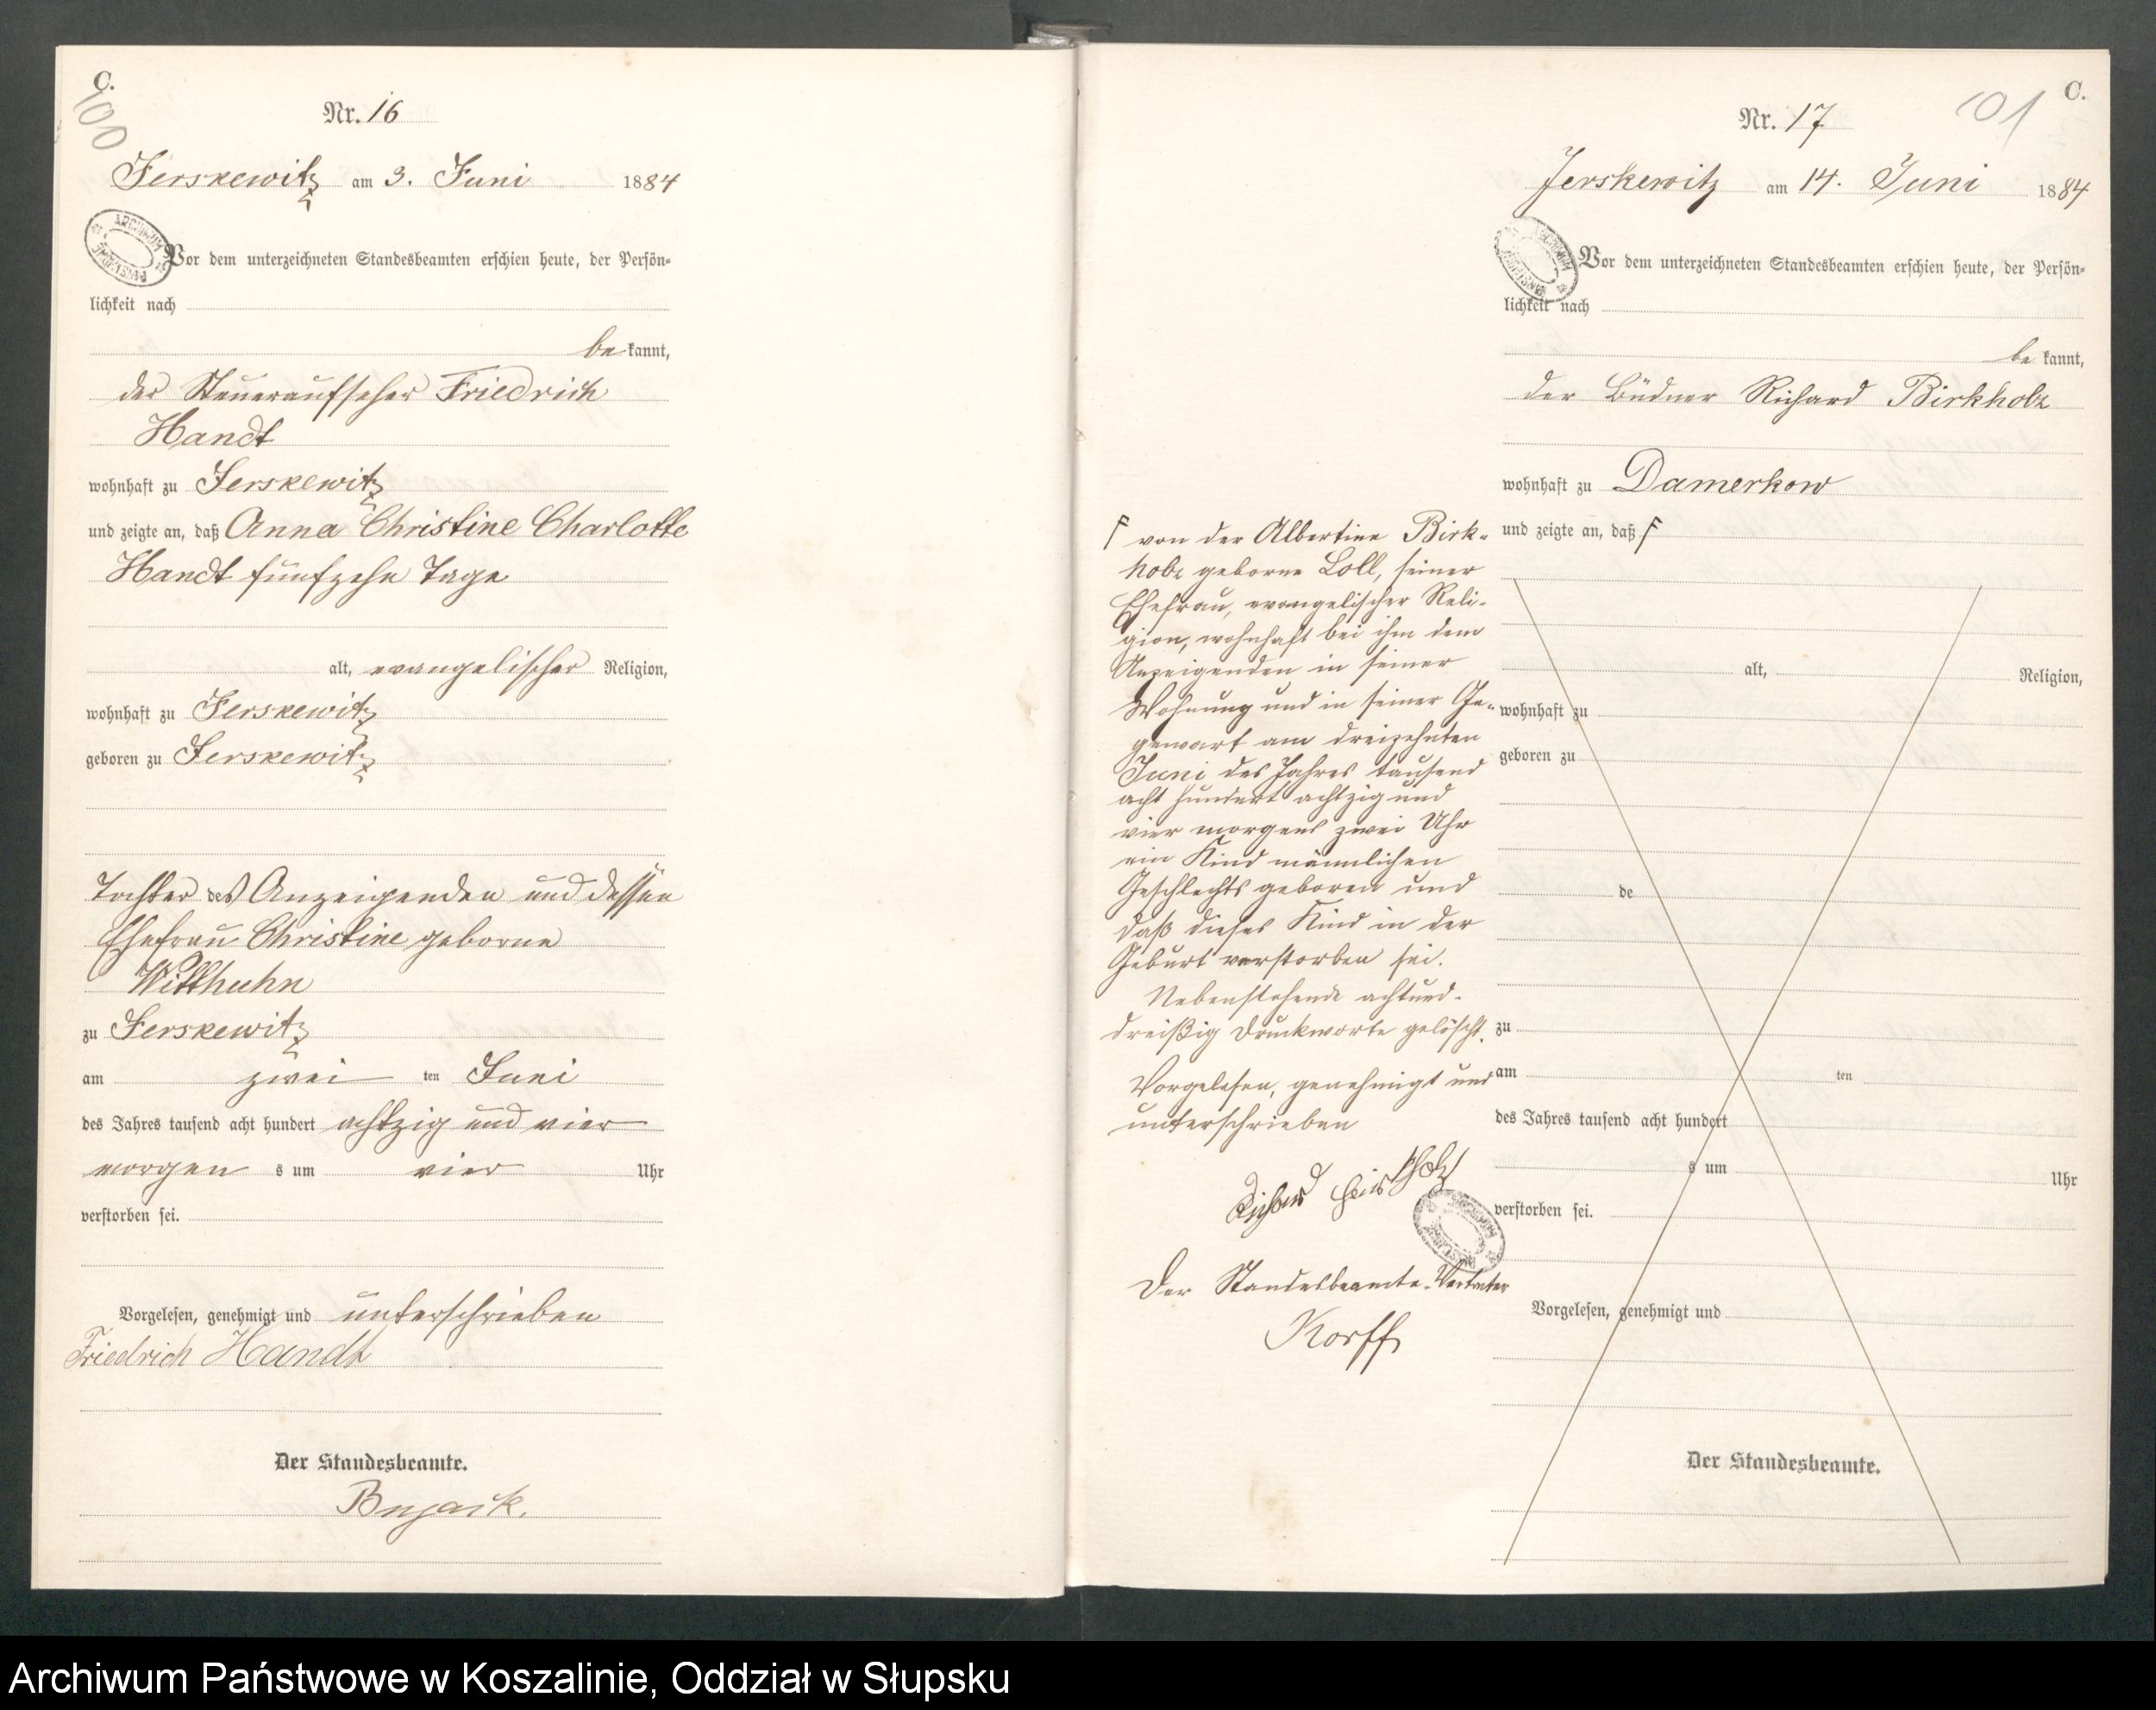 C.
100
Nr. 16
Jerskewitz am 3. Juni 1884
ARCHIWUM PAŃSTWOWE
Vor dem unterzeichneten Standesbeamten erschien heute, der Persön-
lichkeit nach
be kannt,
der Steueraufseher Friedrich
Handt
wohnhaft zu Jerskewitz
und zeigte an, daß Anna Christine Charlotte
Handt fünfzehn Tage
alt, evangelischer Religion,
wohnhaft zu Jerskewitz
geboren zu Jerskewitz
Tochter des Anzeigenden und dessen
Ehefrau Christine geborne
Witthuhn
zu Jerskewitz
am zwei ten Juni
des Jahres tausend acht hundert achtzig und vier
morgen s um vier Uhr
verstorben sei.
Vorgelesen, genehmigt und unterschrieben
Friedrich Handt
Der Standesbeamte.
C.
101
Nr. 17
Jerskewitz am 14. Juni 1884
Vor dem unterzeichneten Standesbeamten erschien heute, der Persön-
lichkeit nach
be kannt,
der Büdner Richard Birkholz
wohnhaft zu Damerkow
und zeigte an, daß F
F von der Albertine Birk-
holz geborne Loll, seiner
Ehefrau, evangelischer Reli-
gion, wohnhaft bei ihm dem
Anzeigenden in seiner
Wohnung und in seiner Ge-
genwart am dreizehnten
Juni des Jahres tausend
acht hundert achtzig und
vier morgens zwei Uhr
ein Kind männlichen
Geschlechts geboren und
daß dieses Kind in der
Geburt verstorben sei.
Nebenstehende achtund-
dreißig Druckworte gelöscht.
Vorgelesen, genehmigt und
unterschrieben
Richard Birkholz
Der Standesbeamte. Vertreter
Korff
alt, Religion,
wohnhaft zu
geboren zu
de
zu
am ten
des Jahres tausend acht hundert
s um Uhr
verstorben sei.
Vorgelesen, genehmigt und
Der Standesbeamte.
Archiwum Państwowe w Koszalinie, Oddział w Słupsku